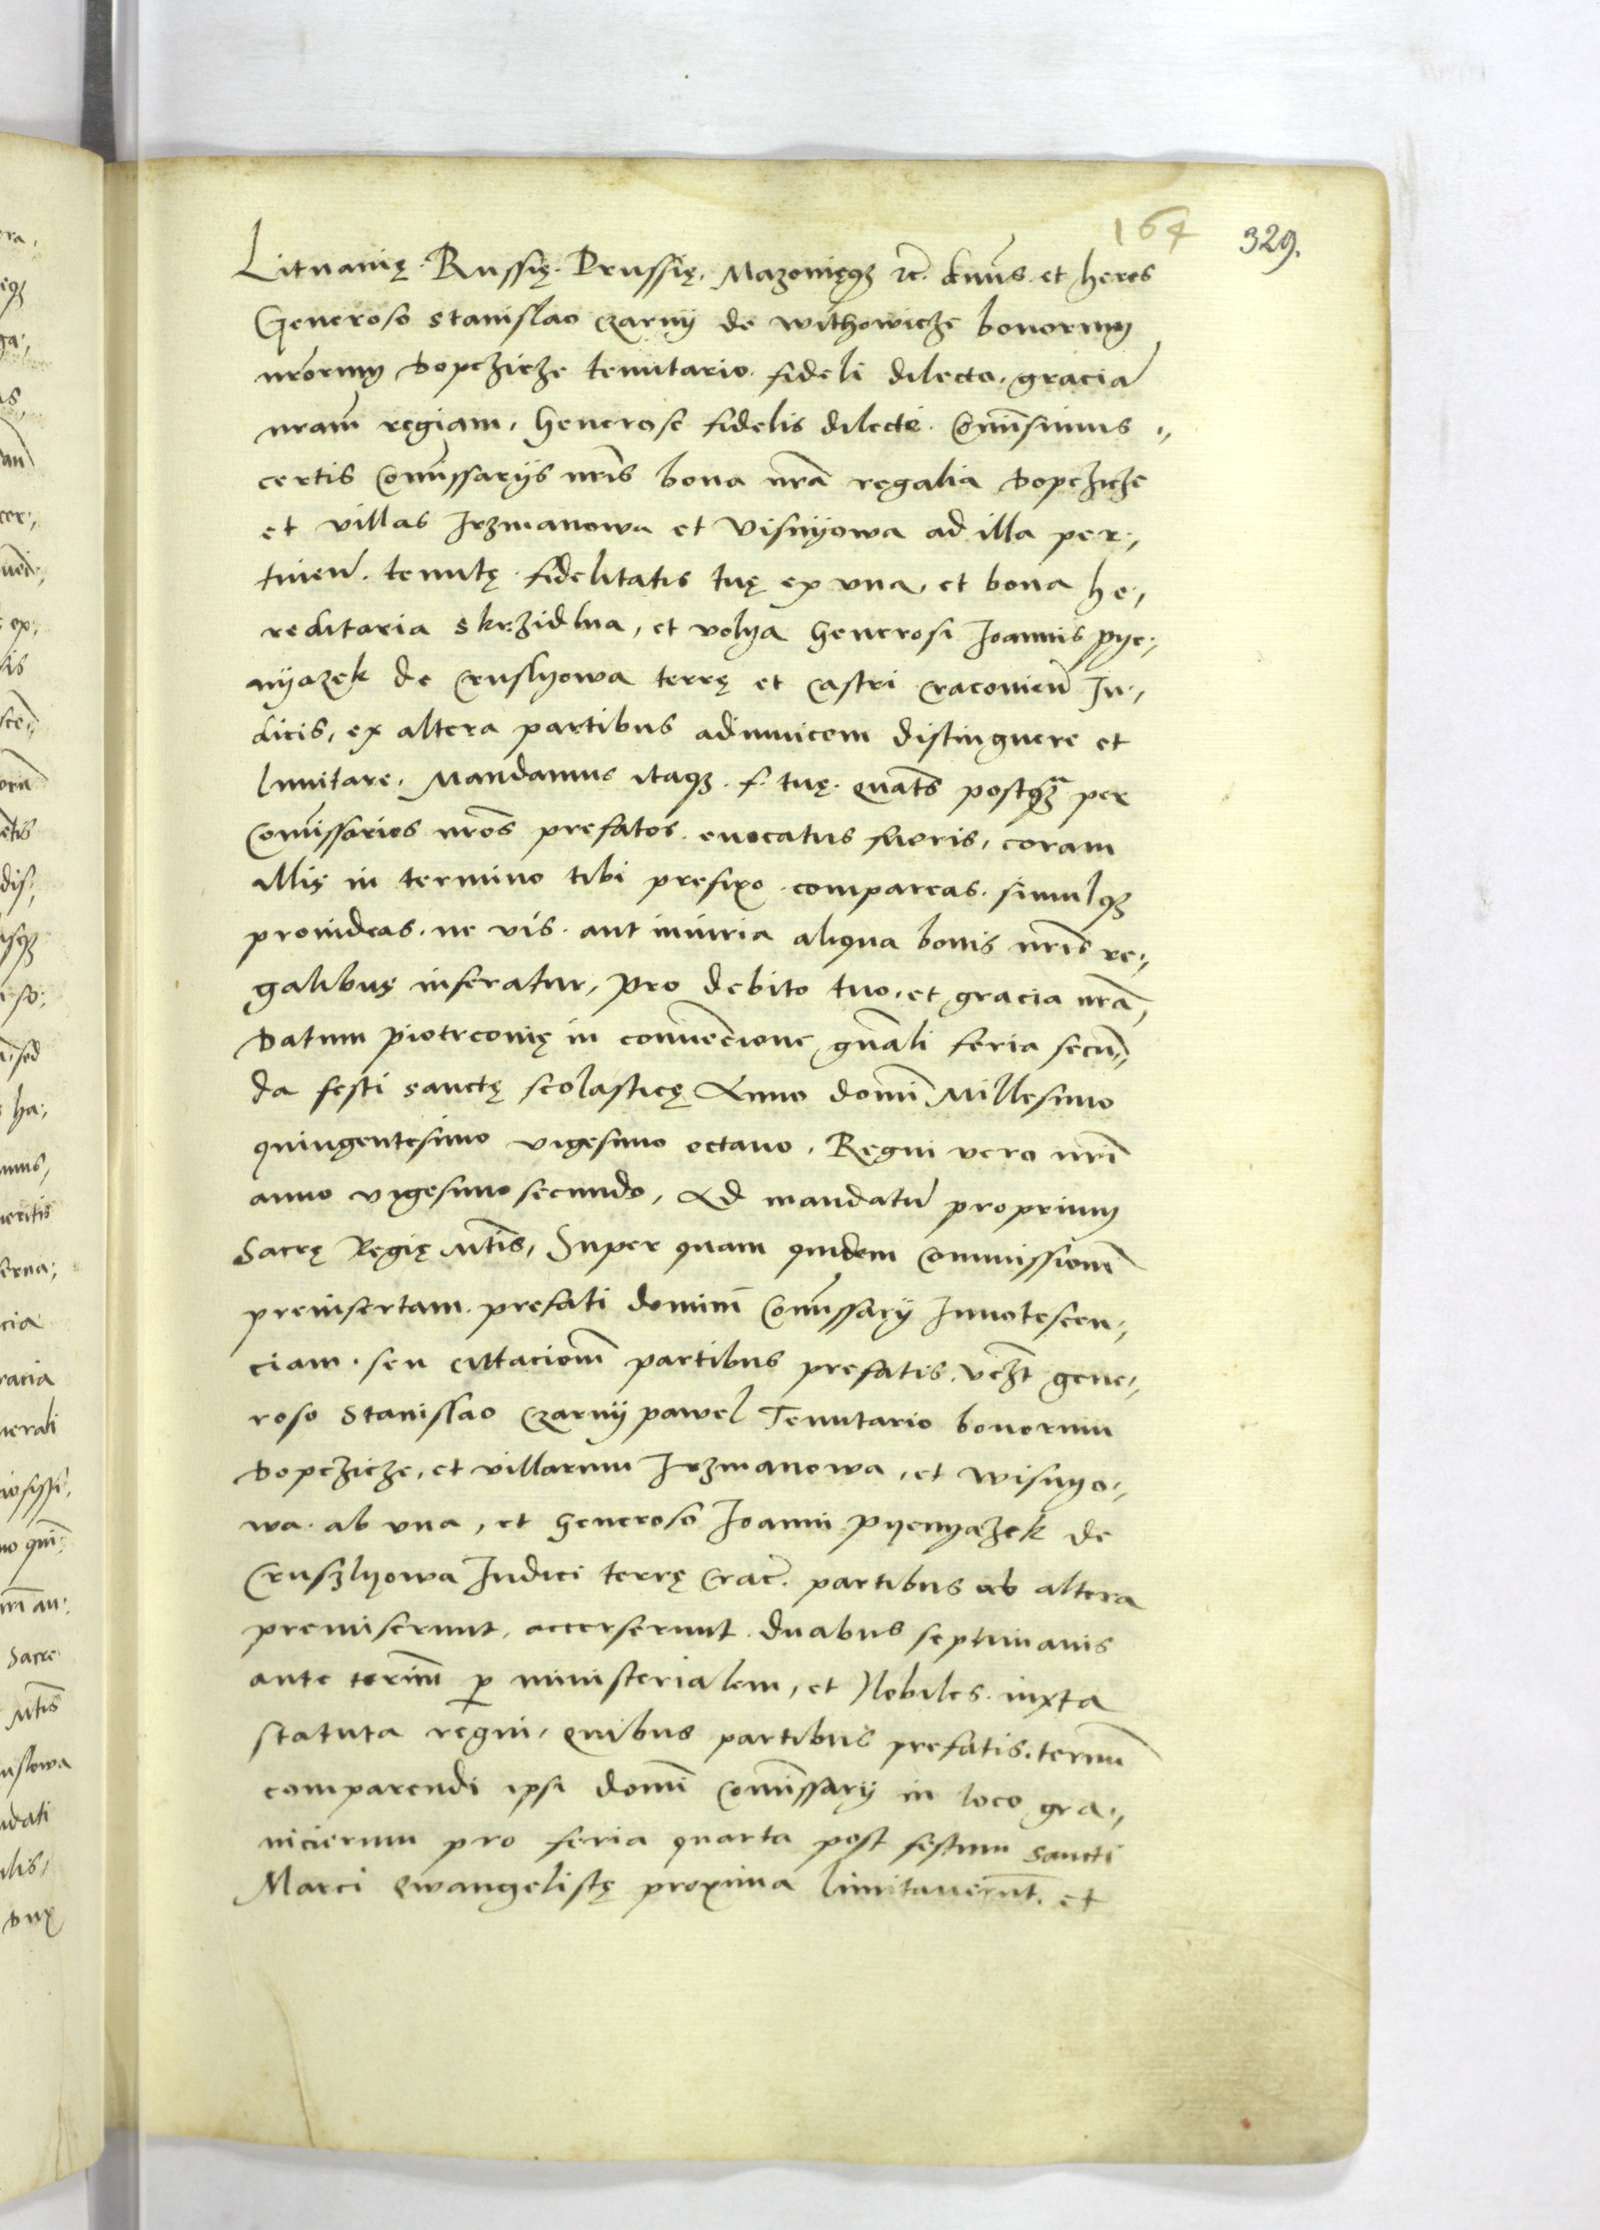 164 329.
Lituanię. Russię. Prussię. Mazouięq3 rc̄. dnūs et heres
Generoso stanislao czarny de withowicze bonorum
nrōrum dopczicze tenutario. fideli dilecto. graciā
nrām regiam. Generose fidelis dilecte. Com̄isimus
certis com̄issarijs nrīs bona nrā regalia dopczicze
et villas Irzmanowa et Visnijowa ad illa per
tinen̄. tenutę fidelitatis tuę ex vna, et bona he
reditaria skrzidlna, et volya Generosi Joannis pye
nyazek de cruslyowa terrę et castri cracouien̄ Ju
dicis, ex altera partibus adinuicem distinguere et
limitare. Mandamus itaq3 f. tuę. quatūs postq3 per
com̄issarios nrōs prefatos. euocatus fueris, coram
illis in termino tibi prefixo compareas. simulq3
prouideas. ne vis aut iniuria aliqua bonis nrīs re
galibus inferatur, pro debito tuo, et gracia nrā,
datum piotrconię in conuēcione gnāli feria secun̄
da festi sanctę scolasticę Anno domī Millesimo
quingentesimo vigesimo octauo. Regni vero nrī
anno vigesimo secundo, Ad mandatū proprium
Sacrę Regię Mtīs, Super quam quidem commissionē
preinsertam. prefati dominī Com̄issarij Innotescen
ciam. seu citacionē partibus prefatis. vcz̄t gene
roso Stanislao czarnij pawel Tenutario bonorum
dopczicze, et villarum Irzmanowa, et wisnyo
wa. ab vna, et Generoso Joanni pyenyazek de
Cruszlyowa Judici terrę crac̄. partibus ab altera
premiserunt. accerserunt. duabus septimanis
ante termī p̱ ministerialem, et Nobiles. iuxta
statuta regni, quibus partibus prefatis. termī
comparendi ipsi domī com̄issarij in loco gra
nicierum pro feria quarta post festum sancti
Marci Ewangelistę proxima limitauerunt̄. et